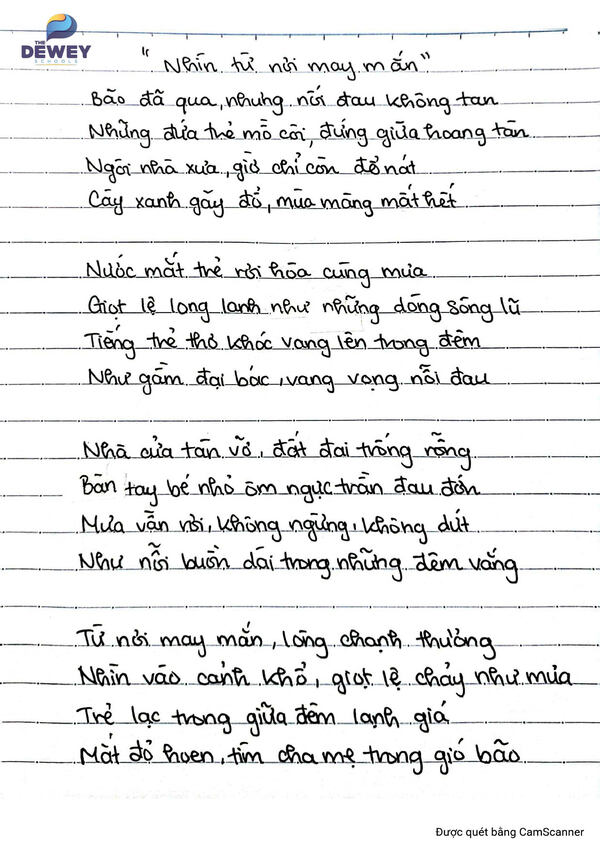 THE
DEWEY
SCHOOLS
"Nhìn từ nơi may mắn"
Bão đã qua, nhưng nỗi đau không tan
Những đứa trẻ mồ côi, đứng giữa hoang tàn
Ngôi nhà xưa, giờ chỉ còn đổ nát
Cây xanh gãy đổ, mùa màng mất hết
Nước mắt trẻ rơi hòa cùng mưa
Giọt lệ long lanh như những dòng sông lũ
Tiếng trẻ thơ khóc vang lên trong đêm
Như gầm đại bác, vang vọng nỗi đau
Nhà cửa tàn vỡ, đất đai trống rỗng
Bàn tay bé nhỏ ôm ngực trần đau đớn
Mưa vẫn rơi, không ngừng, không dứt
Như nỗi buồn dài trong những đêm vắng
Từ nơi may mắn, lòng chạnh thương
Nhìn vào cảnh khổ, giọt lệ chảy như mưa
Trẻ lạc trong giữa đêm lạnh giá
Mắt đỏ hoen, tìm cha mẹ trong gió bão
Được quét bằng CamScanner